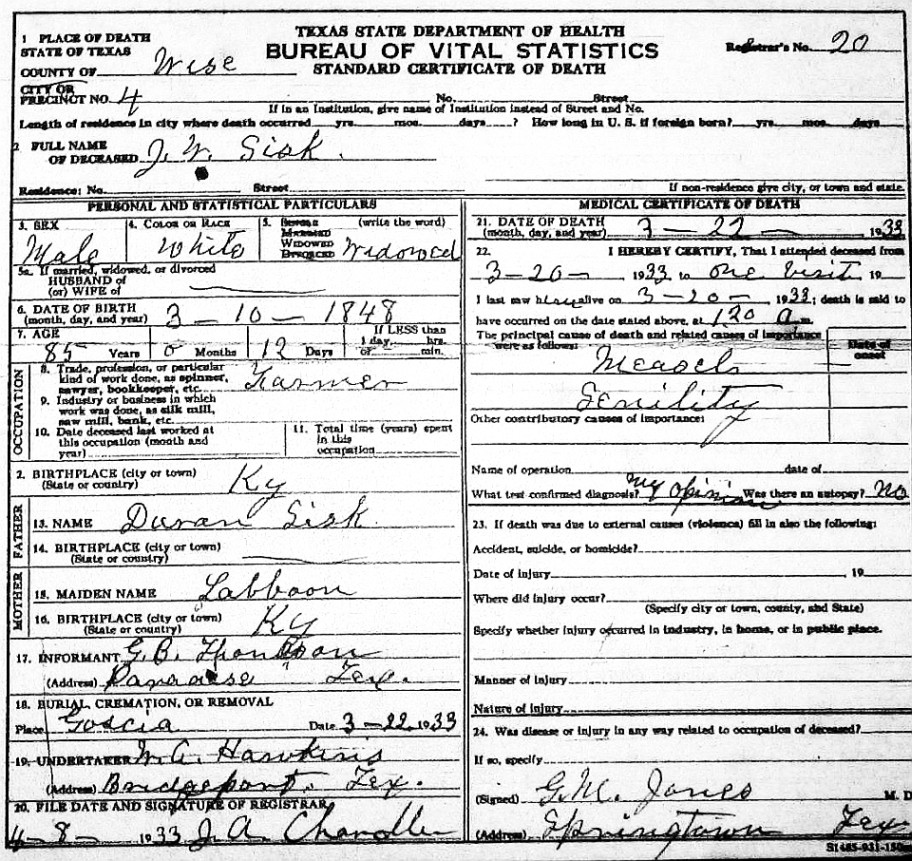 TEXAS STATE DEPARTMENT OF HEALTH
BUREAU OF VITAL STATISTICS
STANDARD CERTIFICATE OF DEATH
Registrar's No. 20
1 PLACE OF DEATH
STATE OF TEXAS
COUNTY OF Wise
CITY OR
PRECINCT NO. 4 No. Street
If in an Institution, give name of Institution instead of Street and No.
Length of residence in city where death occurred yrs. mos. days ? How long in U. S. if foreign born? yrs. mos. days
2 FULL NAME
OF DECEASED J. W. Sisk.
Residence: No. Street If non-residence give city, or town and state.
PERSONAL AND STATISTICAL PARTICULARS
3. SEX Male
4. COLOR OR RACE White
5. SINGLE MARRIED WIDOWED DIVORCED (write the word) Widowed
5a. If married, widowed, or divorced
HUSBAND of
(or) WIFE of
6. DATE OF BIRTH
(month, day, and year) 3-10-1848
7. AGE 85 Years 0 Months 12 Days If LESS than 1 day, hrs. or min.
OCCUPATION
8. Trade, profession, or particular
kind of work done, as spinner,
sawyer, bookkeeper, etc. Farmer
9. Industry or business in which
work was done, as silk mill,
saw mill, bank, etc.
10. Date deceased last worked at
this occupation (month and
year)
11. Total time (years) spent
in this
occupation
2. BIRTHPLACE (city or town)
(State or country) Ky
FATHER
13. NAME Duran Sisk
14. BIRTHPLACE (city or town)
(State or country)
MOTHER
15. MAIDEN NAME Labboon
16. BIRTHPLACE (city or town)
(State or country) Ky
17. INFORMANT G. B.
(Address) Paradise Tex.
18. BURIAL, CREMATION, OR REMOVAL
Place Date 3-22 1933
19. UNDERTAKER W. A. Hawkins
(Address) Bridgeport. Tex.
20. FILE DATE AND SIGNATURE OF REGISTRAR
4-8- 1933 J. A. Chandler
MEDICAL CERTIFICATE OF DEATH
21. DATE OF DEATH
(month, day, and year) 3-22- 1933
22. I HEREBY CERTIFY, That I attended deceased from
3-20- 1933 to one visit 19
I last saw him alive on 3-20- 1933; death is said to
have occurred on the date stated above, at 1:20 a m.
The principal cause of death and related causes of importance
were as follows: Date of onset
Measels
Senility
Other contributory causes of importance:
Name of operation date of
What test confirmed diagnosis? my opinion Was there an autopsy? No
23. If death was due to external causes (violence) fill in also the following:
Accident, suicide, or homicide?
Date of injury 19
Where did injury occur?
(Specify city or town, county, and State)
Specify whether injury occurred in industry, in home, or in public place.
Manner of injury
Nature of injury
24. Was disease or injury in any way related to occupation of deceased?
If so, specify
(Signed) G. M. Jones M. D
(Address) Springtown Tex